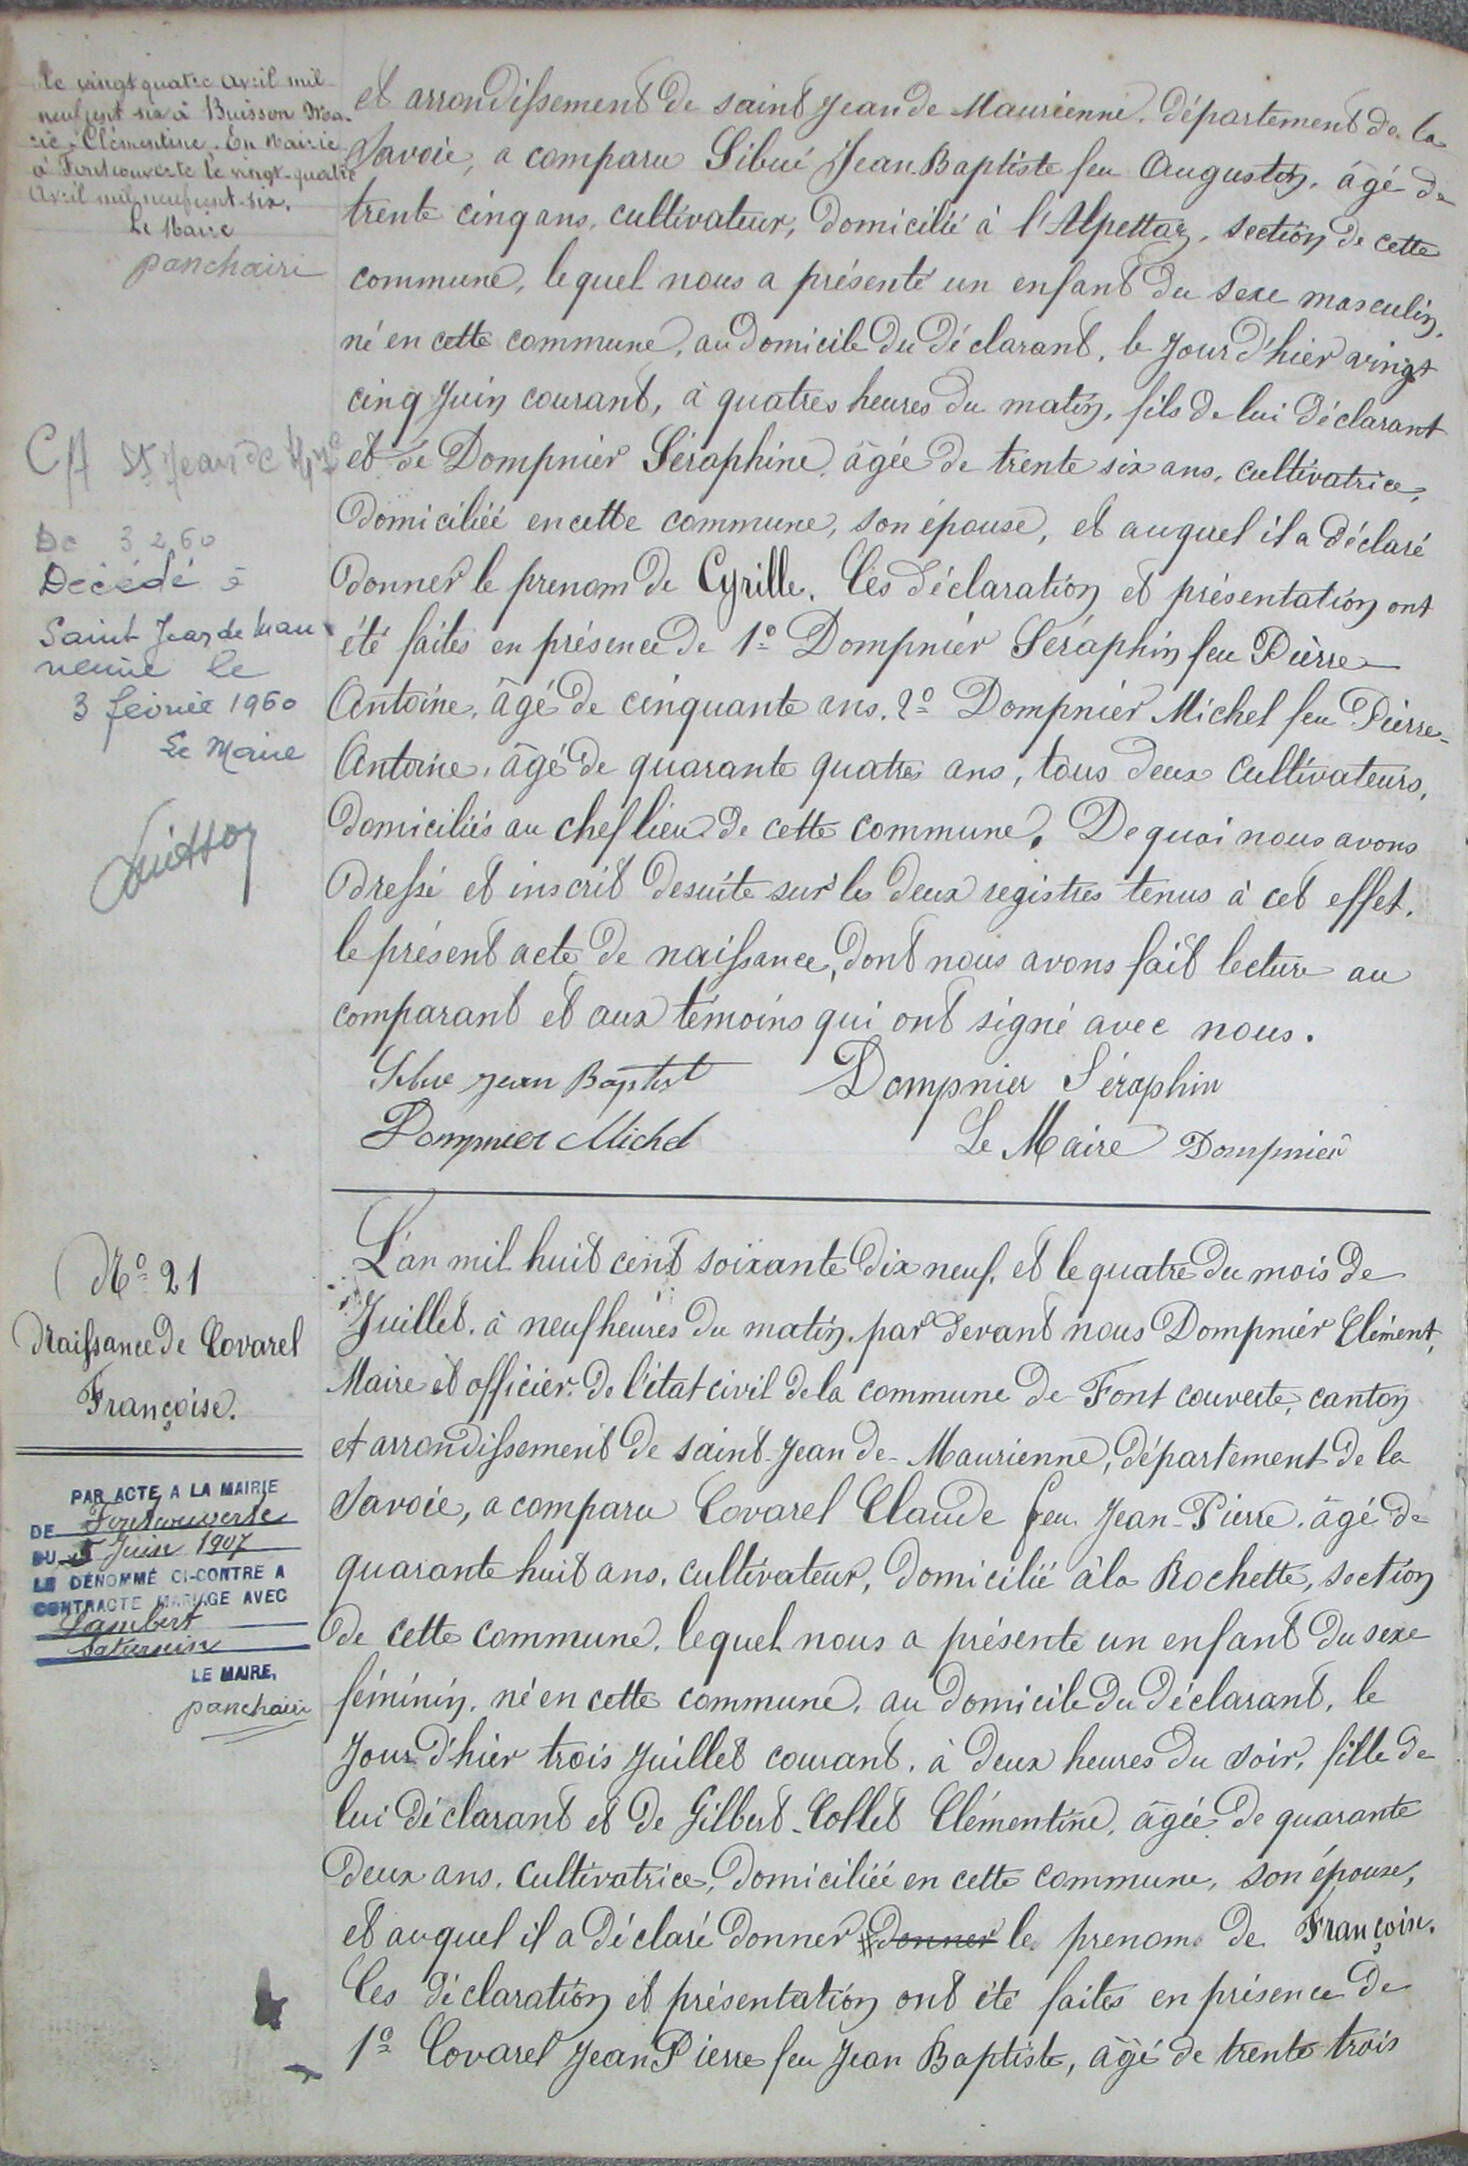 le vingt quatre Avril mil
neuf cent six à Buisson Ma-
rie-Clémentine. En Mairie
à Fontcouverte le vingt-quatre
Avril mil neuf cent-six.
Le Maire
panchairi
et arrondissement de saint Jean de Maurienne. Département de la
Savoie, a comparu Sibué Jean-Baptiste feu Augustin, âgé de
trente cinq ans, cultivateur, domicilié à l'Alpettaz, section de cette
commune, lequel nous a présenté un enfant du sexe masculin,
né en cette commune, au domicile du déclarant, le jour d'hier vingt
cinq Juin courant, à quatres heures du matin, fils de lui déclarant
et de Dompnier Séraphine, âgée de trente six ans, cultivatrice,
domiciliée en cette commune, son épouse, et auquel il a déclaré
donner le prenom de Cyrille. Ces déclaration et présentation ont
été faites en présence de 1º Dompnier Séraphin feu Pierre
Antoine, âgé de cinquante ans, 2º Dompnier Michel feu Pierre-
Antoine, âgé de quarante quatre ans, tous deux cultivateurs,
domiciliés au chef lieu de cette commune. De quoi nous avons
dressé et inscrit desuite sur les deux registres tenus à cet effet,
le présent acte de naissance, dont nous avons fait lecture au
comparant et aux témoins qui ont signé avec nous.
Sibue jean Baptist Dompnier Séraphin
Dompnier Michel Le Maire Dompnier
CA St Jean de Mne
De 3 2 60
Décédé à
Saint Jean de Mau
rienne le
3 février 1960
Le Maire
Nº 21
Naissance de Covarel
Françoise.
PAR ACTE A LA MAIRIE
DE Fontcouverte
DU 5 Juin 1907
LE DÉNOMMÉ CI-CONTRE A
CONTRACTÉ MARIAGE AVEC
Lambert
Saturnin
LE MAIRE,
panchairi
L'an mil huit cent soixante dix neuf, et le quatre du mois de
Juillet, à neuf heures du matin, par devant nous Dompnier Clément,
Maire et officier de l'état civil de la commune de Font couverte, canton
et arrondissement de saint-Jean-de-Maurienne, département de la
Savoie, a comparu Covarel Claude feu Jean-Pierre, âgé de
quarante huit ans, cultivateur, domicilié à la Rochette, section
de cette commune, lequel nous a présente un enfant du sexe
féminin, né en cette commune, au domicile du déclarant, le
jour d'hier trois Juillet courant, à deux heures du soir, fille de
lui déclarant et de Gilbert-Collet Clémentine, âgée de quarante
deux ans, cultivatrice, domiciliée en cette commune, son épouse,
et auquel il a déclaré donner donner le prenom de Françoise.
Ces déclaration et présentation ont été faites en présence de
1º Covarel Jean Pierre feu Jean Baptiste, âgé de trente trois